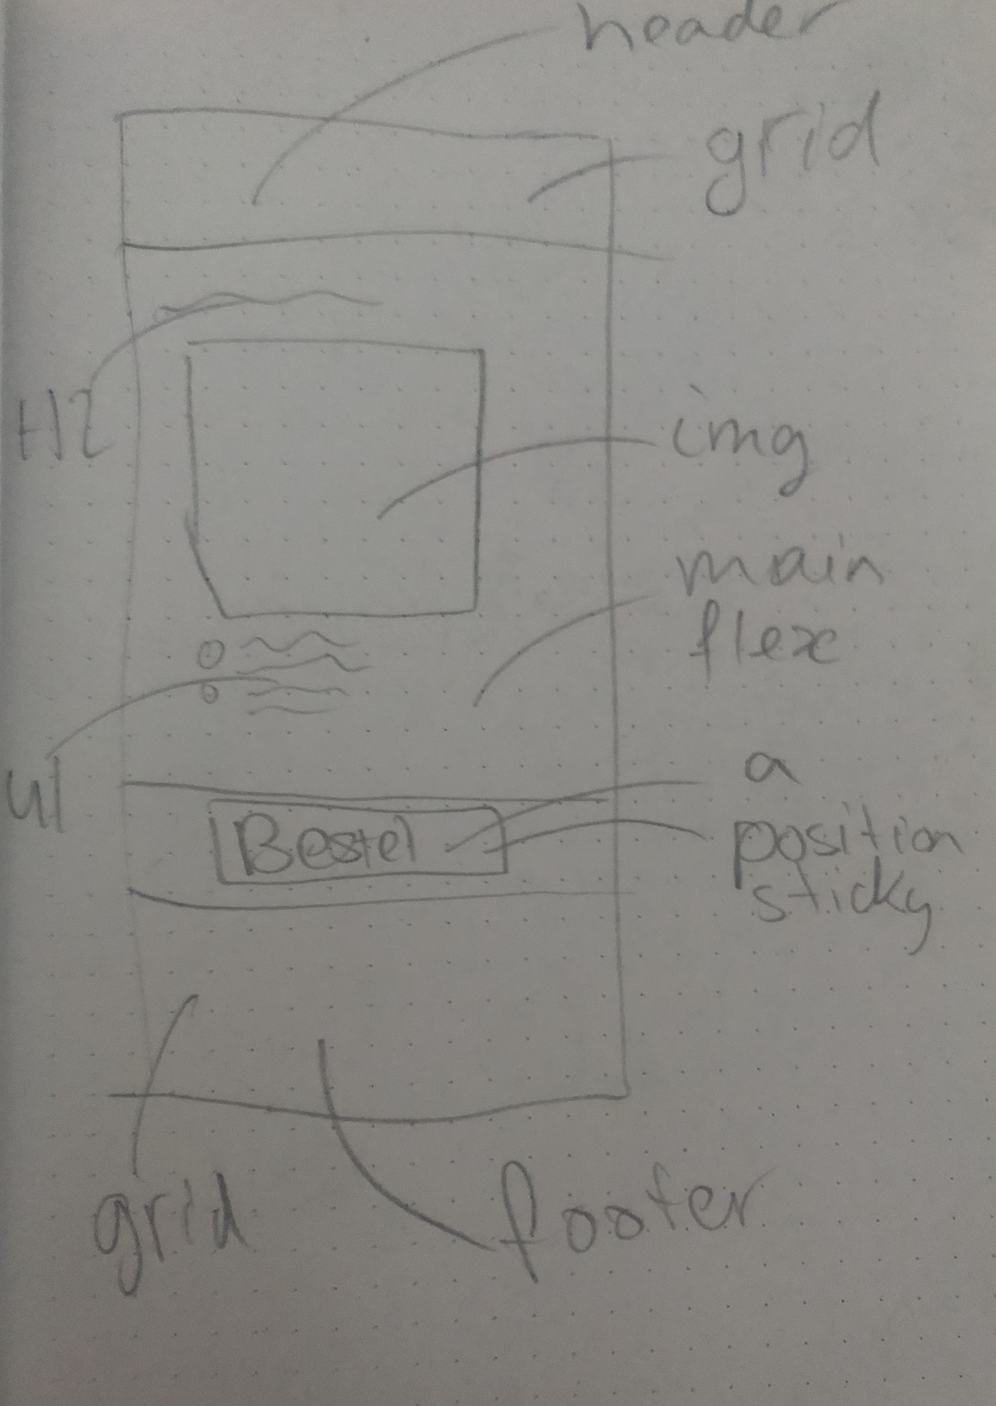 header
grid
H2
img
main
flex
ul
a
Bestel
position
sticky
grid
footer